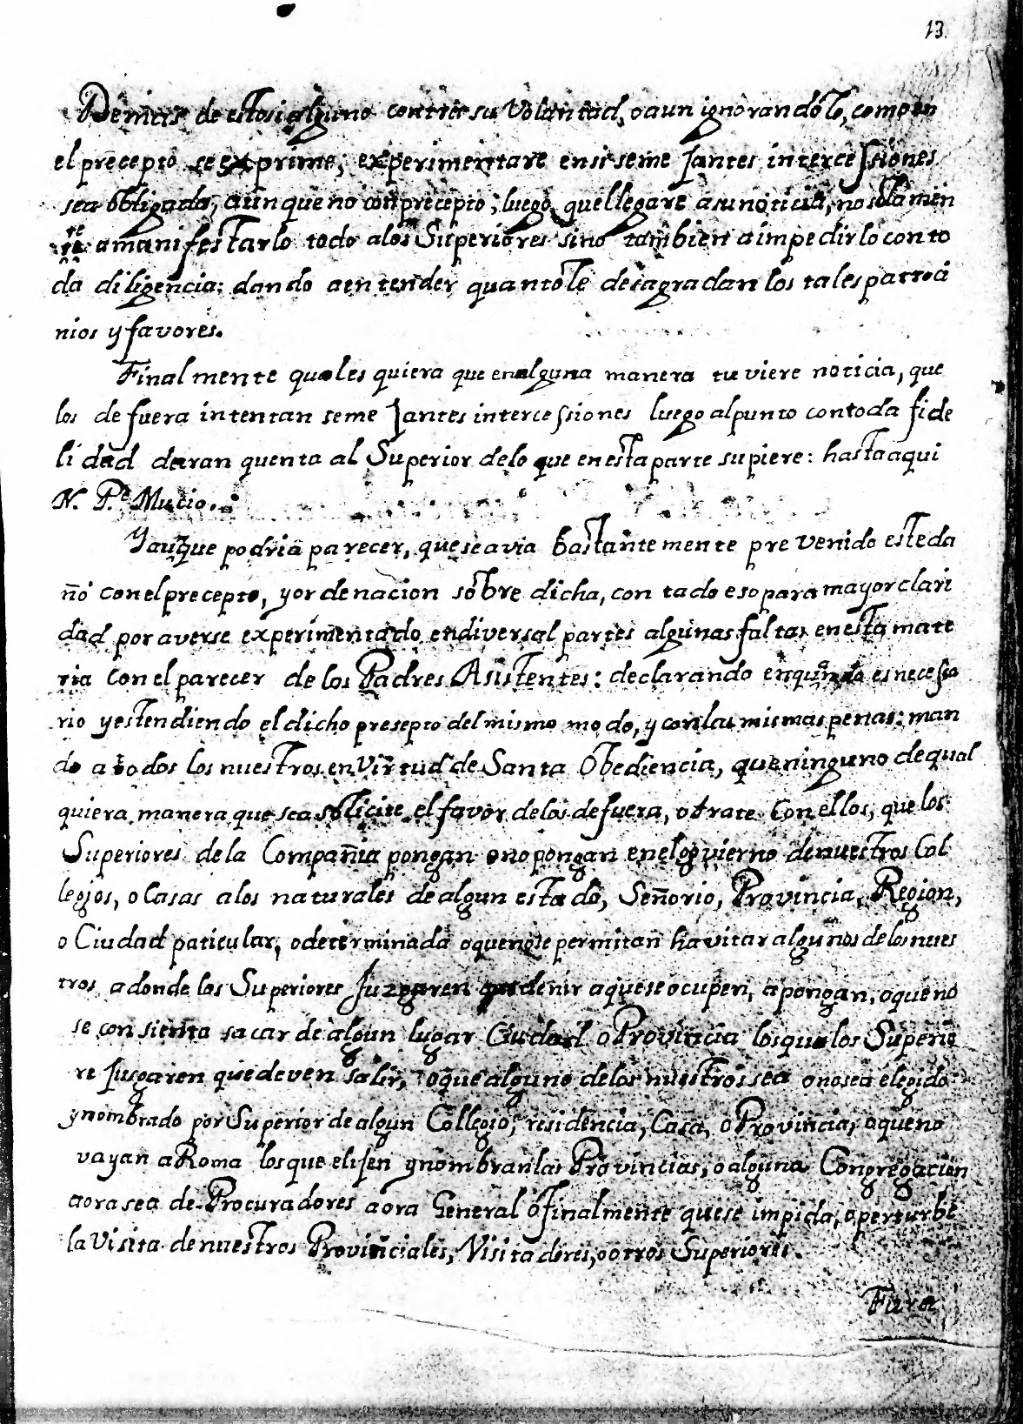 13.
Demas de esto si alguno contra su Voluntad, o aun ignorandolo, como en
el precepto se exprime, experimentare en si semejantes intercessiones
sea obligado, aunque no con precepto; luego que llegare a su noticia, no solamen
te a manifestarlo todo a los Superiores sino tambien a impedirlo con to
da diligencia; dando a entender quanto le desagradan los tales patroci
nios y favores.
Finalmente quales quiera que en alguna manera tuviere noticia, que
los de fuera intentan semejantes intercessiones luego al punto con toda fide
lidad daran quenta al Superior de lo que en esta parte supiere: hasta aqui
N. P.e Mucio.
Y auque podria parecer, que se avia bastantemente prevenido este da
ño con el precepto, y ordenacion sobre dicha, con todo eso para mayor clari
dad por averse experimentado en diversal partes algunas faltas en esta mate
ria con el parecer de los Padres Asistentes: declarando en quanto es necesa
rio y estendiendo el dicho presepto del mismo modo, y con las mismas penas: man
do a todos los nuestros en Virtud de Santa Obediencia, que ninguno de qual
quiera manera que sea solicite el favor de los de fuera, o trate con ellos, que los
Superiores de la Compañia pongan o no pongan en el govierno de nuestros Col
legios, o Casas a los naturales de algun estado, Señorio, Provincia, Region,
o Ciudad paticular, o determinada o que no se permitan havitar algunos de los nues
tros a donde los Superiores Juzgaren que denir a que se ocupen, a pongan, o que no
se consienta sacar de algun lugar Ciudad o Provincia los qualos Superio
re Jusgaren que deven salir, o que alguno de los nuestros sea o no sea elegido
y nombrado por Superior de algun Collegio, residencia, Casa, o Provincia, o que no
vayan a Roma los que elijen y nombran las Provincias, o alguna Congregacion
aora sea de Procuradores aora General o finalmente que se impida, o perturbe
la Visita de nuestros Provinciales, Visitadores, o otros Superiores.
Fura